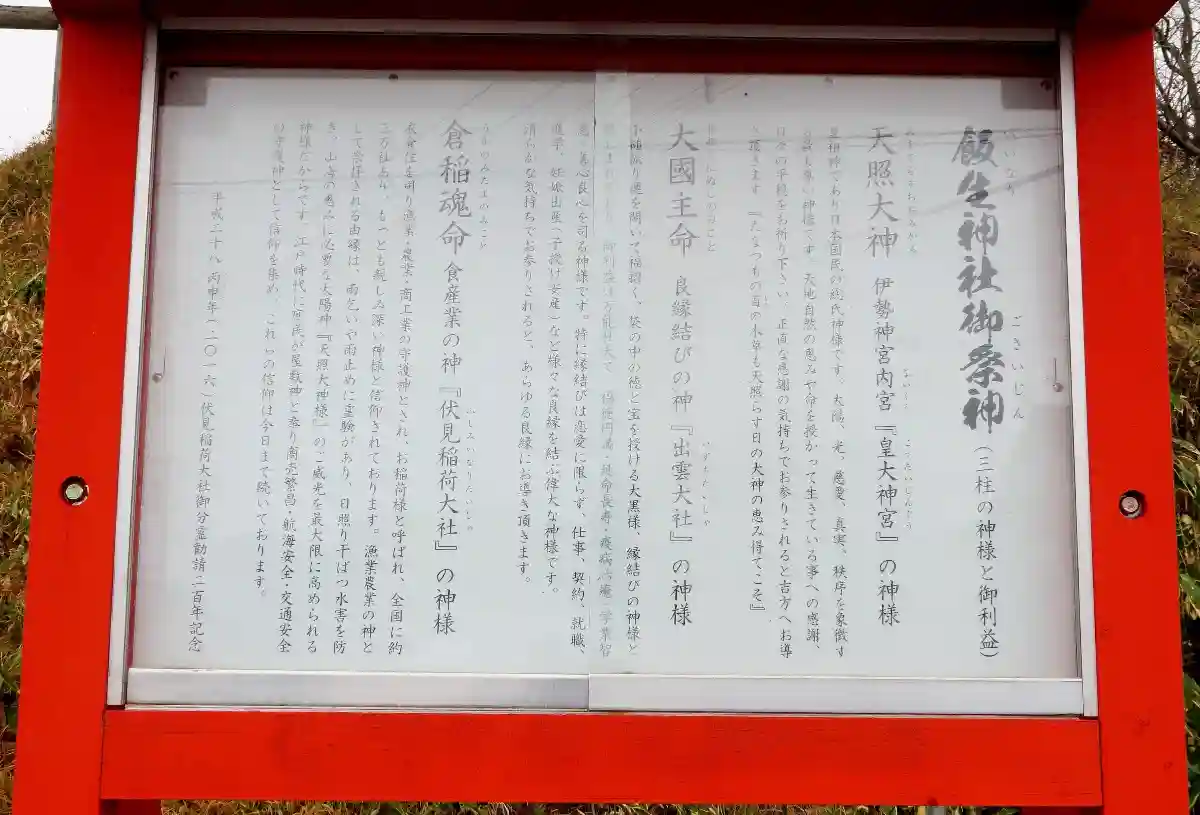 飯生神社御祭神（三柱の神様と御利益）
ごさいじん
天照大神 伊勢神宮内宮『皇大神宮』の神様
皇祖神であり日本国民の総氏神様です。太陽、光、慈愛、真実、秩序を象徴す
尊い神様です。天地自然の恵みや命を授かって生きている事への感謝、
日々の平穏をお祈り下さい。正直な感謝の気持ちでお参りされると吉方へお導
き頂きます。『たなつもの百の木草も天照らす日の大神の恵み得てこそ』
大國主命 良縁結びの神『出雲大社』の神様
いずもたいしゃ
小槌振り運を開いて福招く、袋の中の徳と宝を授ける大黒様、縁結びの神様と
延命長寿・疫病治癒・学業智
良心を司る神様です。特に縁結びは恋愛に限らず、仕事、契約、就職、
進学、妊娠出産（子授け安産）など様々な良縁を結ぶ偉大な神様です。
清らかな気持ちでお参りされると、あらゆる良縁にお導き頂きます。
倉稲魂命 食産業の神『伏見稲荷大社』の神様
うかのみたまのみこと
ふしみいなりたいしゃ
衣食住を司り漁業・農業・商工業の守護神とされ、お稲荷様と呼ばれ、全国に約
三万社あり、もっとも親しみ深い神様と信仰されております。漁業農業の神と
して崇拝される由縁は、雨乞いや雨止めに霊験があり、日照り干ばつ水害を防
ぎ、山海の恵みに必要な太陽神『天照大神様』のご威光を最大限に高められる
神様だからです。江戸時代に庶民が屋敷神と奉り商売繁昌・航海安全・交通安全
の守護神として信仰を集め、これらの信仰は今日まで続いております。
平成二十八 丙申年（二〇一六）伏見稲荷大社御分霊勧請二百年記念